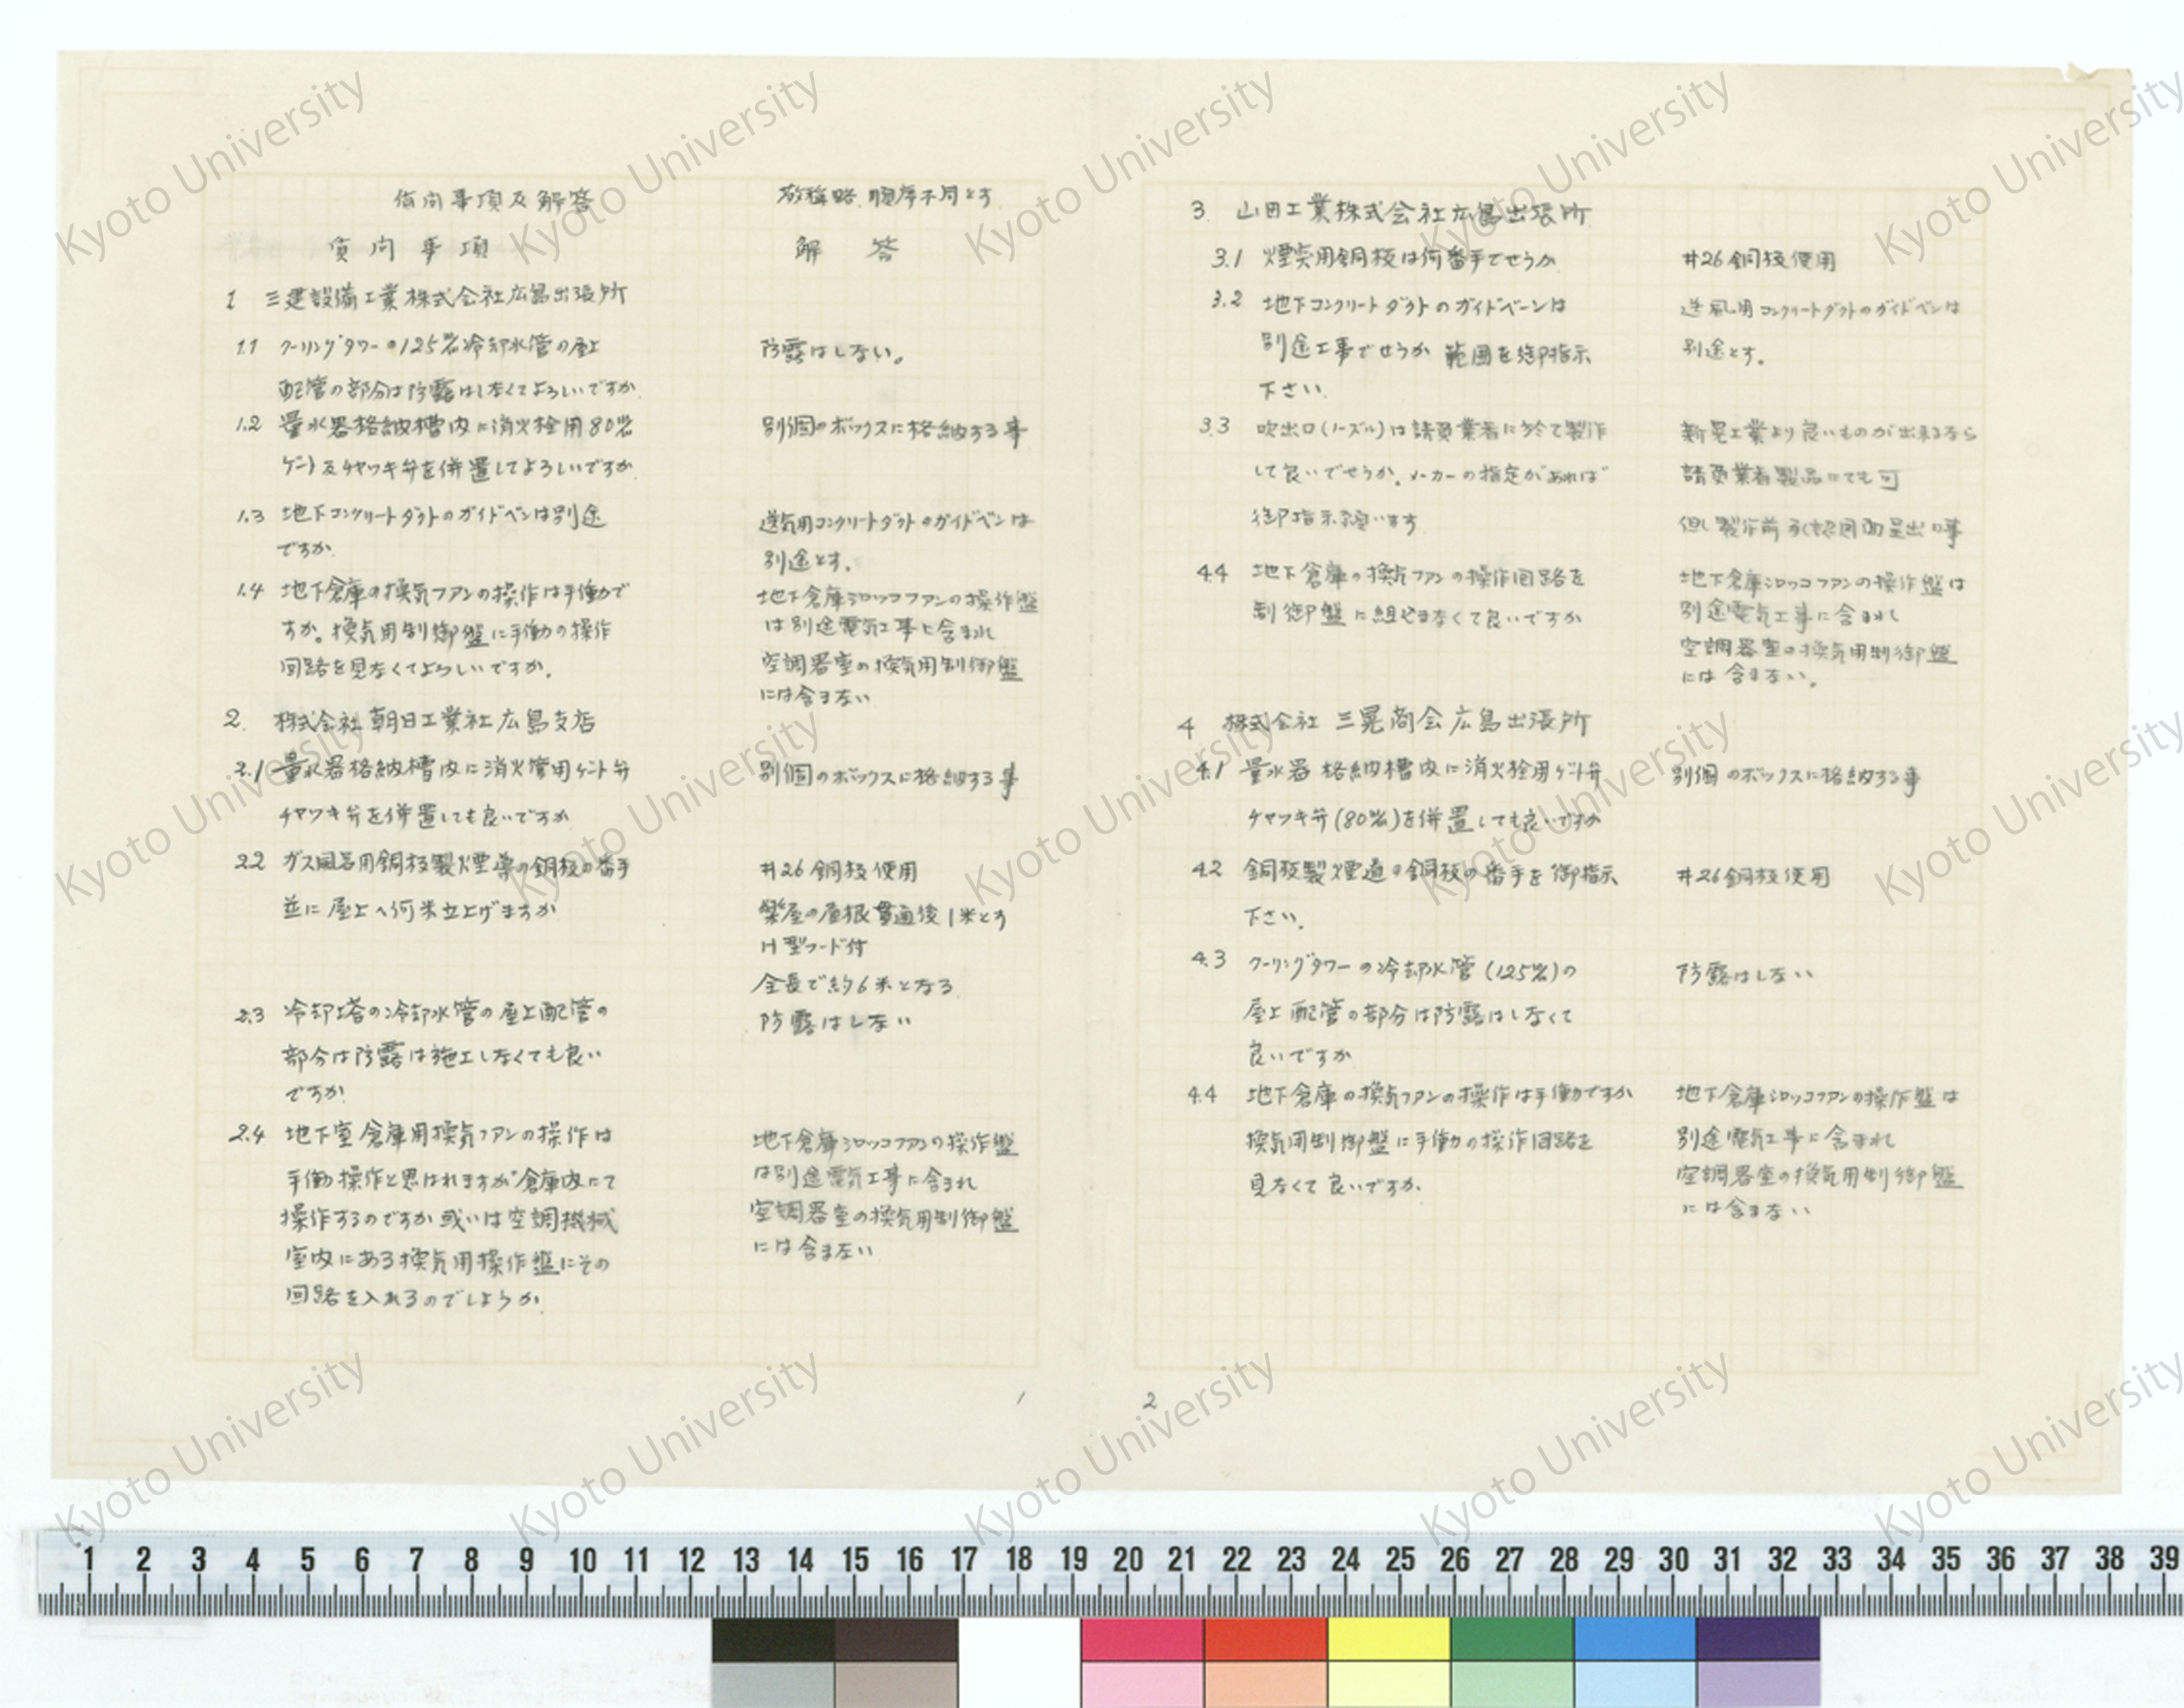 質問事項及解答
敬称略 順序不同とす
質問事項
解答
1 三建設備工業株式会社広島出張所
1.1 クーリングタワーの125%冷却水管の屋上
配管の部分は防露はしなくてよろしいですか
防露はしない。
1.2 量水器格納槽内に消火栓用80%
ゲート及チヤツキ弁を併置してよろしいですか
別個のボックスに格納する事
1.3 地下コンクリートダクトのガイドベンは別途
ですか
送気用コンクリートダクトのガイドベンは
別途とす。
1.4 地下倉庫の換気ファンの操作は手働で
すか。換気用制御盤に手働の操作
回路を見なくてよろしいですか。
地下倉庫シロッコファンの操作盤
は別途電気工事に含まれ
空調器室の換気用制御盤
には含まない
2. 株式会社朝日工業社広島支店
2.1 量水器格納槽内に消火管用ゲート弁
チヤツキ弁を併置しても良いですか
別個のボックスに格納する事
2.2 ガス風呂用銅板製煙導の銅板の番手
並に屋上へ何米立上げますか
#26銅板使用
楽屋の屋根貫通後1米とす
H型フード付
全長で約6米となる
2.3 冷却塔の冷却水管の屋上配管の
部分は防露は施工しなくても良い
ですか
防露はしない
2.4 地下室倉庫用換気ファンの操作は
手働操作と思はれますが倉庫内にて
操作するのですか或いは空調機械
室内にある換気用操作盤にその
回路を入れるのでしようか
地下倉庫シロッコファンの操作盤
は別途電気工事に含まれ
空調器室の換気用制御盤
には含まない
1
3 山田工業株式会社広島出張所
3.1 煙突用銅板は何番手でせうか
#26銅板使用
3.2 地下コンクリートダクトのガイドベーンは
別途工事でせうか 範囲を御指示
下さい
送風用コンクリートダクトのガイドベンは
別途とす。
3.3 吹出口(ノーズル)は請負業者に於て製作
して良いでせうか。メーカーの指定があれば
御指示願います
新晃工業より良いものが出来るなら
請負業者製品にても可
但し製作前承認図面呈出の事
4.4 地下倉庫の換気ファンの操作回路を
制御盤に組込まなくて良いですか
地下倉庫シロッコファンの操作盤は
別途電気工事に含まれ
空調器室の換気用制御盤
には含まない。
4 株式会社 三晃商会広島出張所
4.1 量水器格納槽内に消火栓用ゲート弁
チヤツキ弁(80%)を併置しても良いですか
別個のボックスに格納する事
4.2 銅板製煙道の銅板の番手を御指示
下さい。
#26銅板使用
4.3 クーリングタワーの冷却水管(125%)の
屋上配管の部分は防露はしなくて
良いですか
防露はしない
4.4 地下倉庫の換気ファンの操作は手働ですか
換気用制御盤に手働の操作回路を
見なくて良いですか.
地下倉庫シロッコファンの操作盤は
別途電気工事に含まれ
空調器室の換気用制御盤
には含まない
2
Kyoto University
1 2 3 4 5 6 7 8 9 10 11 12 13 14 15 16 17 18 19 20 21 22 23 24 25 26 27 28 29 30 31 32 33 34 35 36 37 38 39